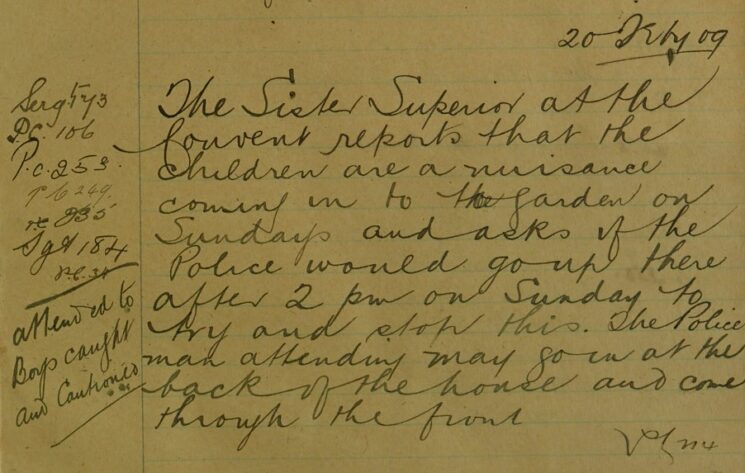 20 Feby 09
Sergt 73
P.C. 106
P.c. 253.
P C 249
835
Sgt 184
attended to
Boys caught
and Cautioned
The Sister Superior at the
Convent reports that the
children are a nuisance
coming in to the garden on
Sundays and asks if the
Police would go up there
after 2 pm on Sunday to
try and stop this. The Police
man attending may go in at the
back of the house and come
through the front